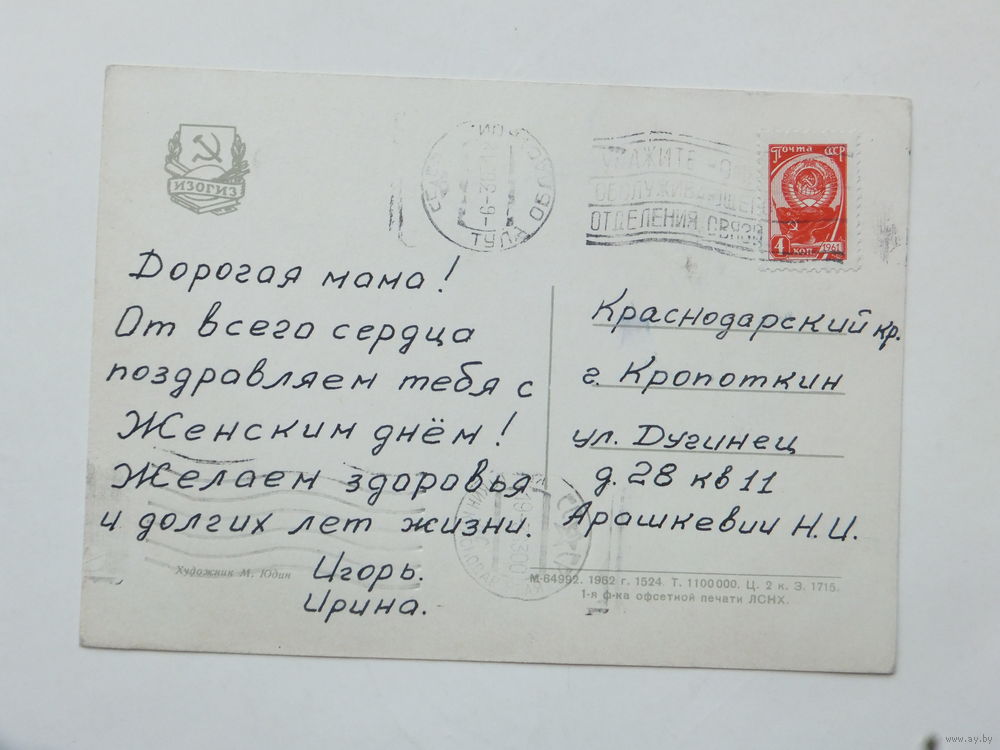 ИЗОГИЗ
ТУЛА
УКАЖИТЕ
ОБСЛУЖИВАЮЩЕГО
ОТДЕЛЕНИЯ СВЯЗИ
Почта СССР
4 коп. 1961
Дорогая мама!
От всего сердца
поздравляем тебя с
Женским днём!
Желаем здоровья
и долгих лет жизни.
Игорь.
Ирина.
Краснодарский кр.
г. Кропоткин
ул. Дугинец
д. 28 кв 11
Арашкевич Н.И.
Художник М. Юдин
М-64992. 1962 г. 1524 Т. 1100000. Ц. 2 к. З. 1715.
1-я ф-ка офсетной печати ЛСНХ.
www.ay.by